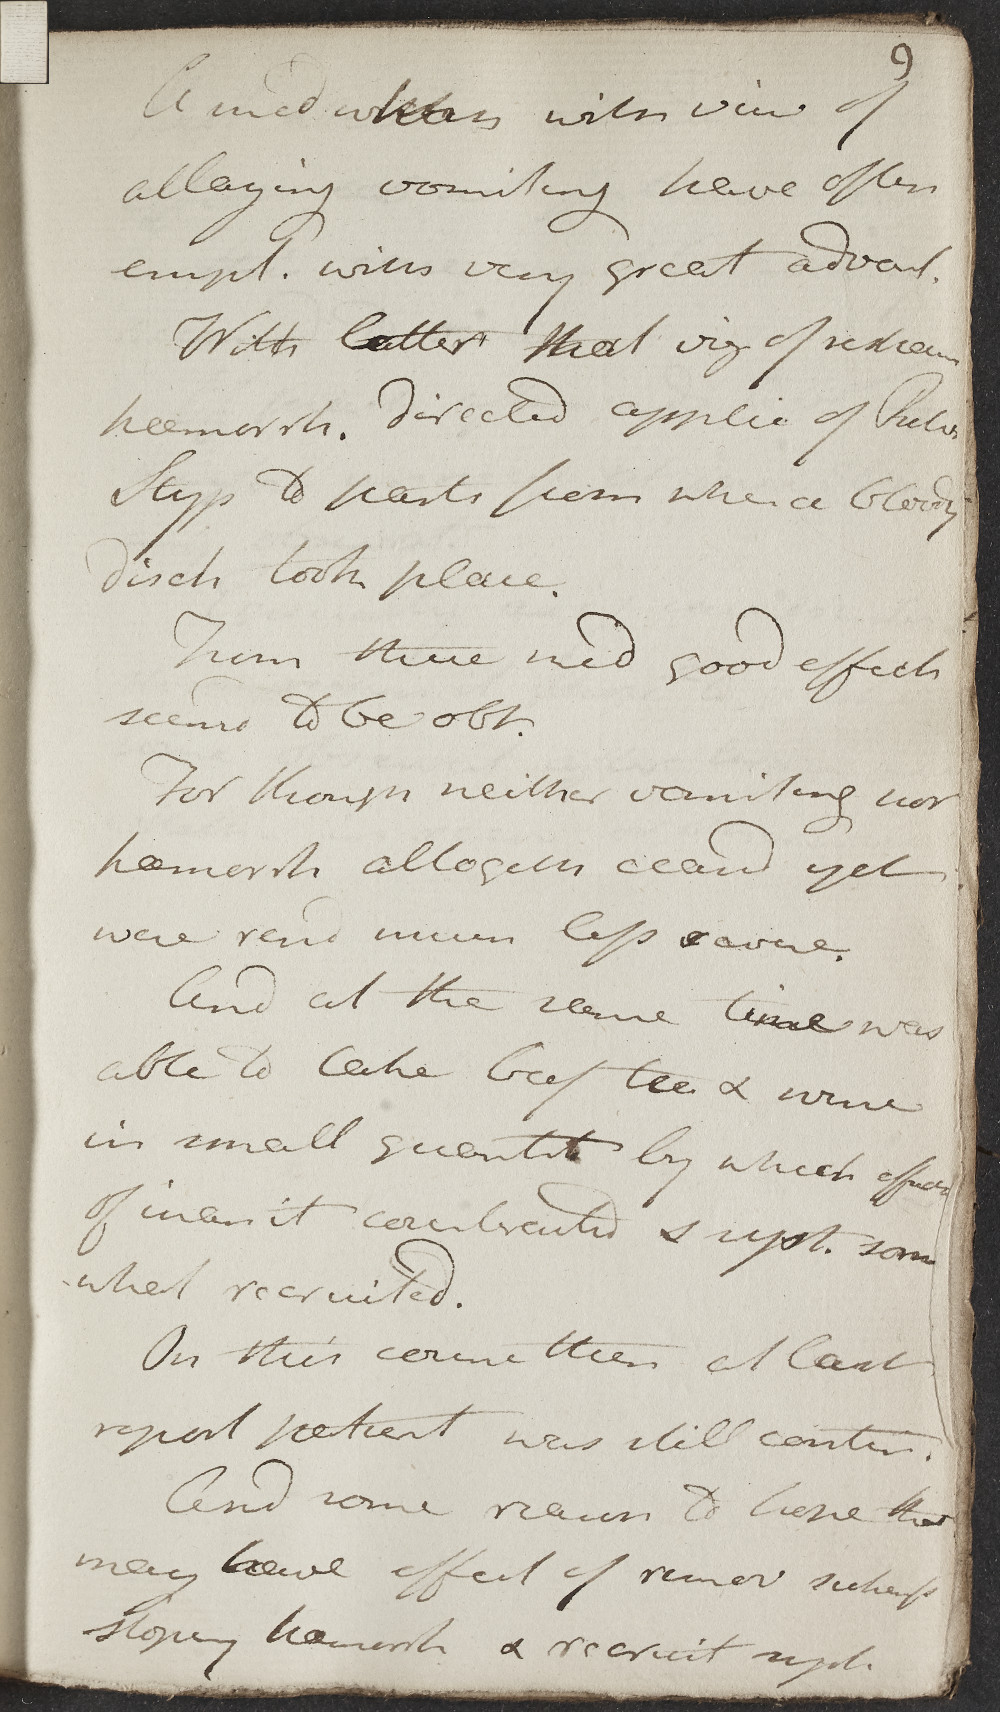 9
A med which with view of
allaying vomiting have often
empl. with very great advant.
With latter that viz of restrain
haemorrh. directed applic of Pulv
Styp to parts from whence bloody
disch took place.
From these med good effects
seems to be obt.
For though neither vomiting nor
hæmorrh altogeth ceasd yet
were rend much less severe.
And at the same time was
able to take beef tea & wine
in small quantit by which effects
of inanit counteracted & syst. some
what recruited.
On this course then at last
report patient was still contin.
And some reason to hope that
may have effect of remov
stoping hæmorrh & recruit syst.